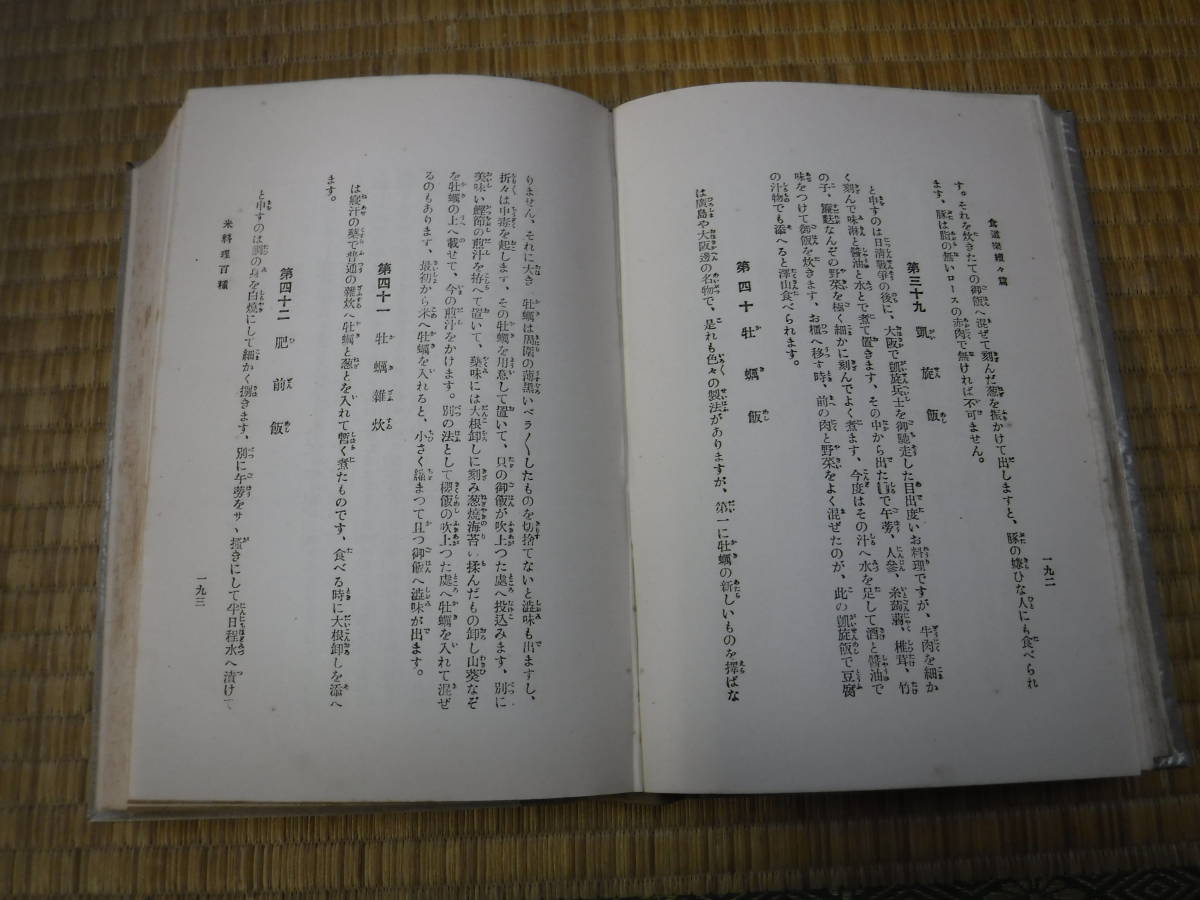 食道樂續々篇
一九二
す。それを炊きたての御飯へ混ぜて刻んだ葱を振かけて出しますと、豚の嫌ひな人にも食べられ
ます、豚は脂の無いロースの赤肉で無ければ不可ません。
第三十九 凱旋飯
と申すのは日清戰爭の後に、大阪で凱旋兵士を御馳走した目出度いお料理ですが、牛肉を細か
く刻んで味淋と醬油と水とで煮て置きます、その中から出た で午蒡、人參、糸蒟蒻、椎茸、竹
の子、簾麩なんぞの野菜を極く細かに刻んでよく煮ます、今度はその汁へ水を足して酒と醬油で
味をつけて御飯を炊きます、お櫃へ移す時、前の肉と野菜をよく混ぜたのが、此の凱旋飯で豆腐
の汁物でも添へると澤山食べられます。
第四十 牡蠣飯
は廣島や大阪邊の名物で、是れも色々の製法がありますが、第一に牡蠣の新しいものを擇ばな
りません、それに大き 牡蠣は周圍の薄黑いベラ〳〵したものを切捨てないと澁味も出ますし、
折々は中毒を起します、その牡蠣を用意して置いて、只の御飯が吹上つた處へ投込みます、別に
美味い鰹節の煎汁を拵へて置いて、藥味には大根卸しに刻み葱燒海苔の揉んだもの卸し山葵なぞ
を牡蠣の上へ載せて、今の煎汁をかけます。別の法として櫻飯の吹上つた處へ牡蠣を入れて混ぜ
るのもあります、最初から米へ牡蠣を入れると、小さく縮まつて且つ御飯へ澁味が出ます。
第四十一 牡蠣雜炊
は寢汗の藥で普通の雜炊へ牡蠣と葱とを入れて暫く煮たものです、食べる時に大根卸しを添へ
ます。
第四十二 肥前飯
と申すのは鯛の身を白燒にして細かく捌きます、別に午蒡をサヽ搔きにして半日程水へ漬けて
米料理百種
一九三